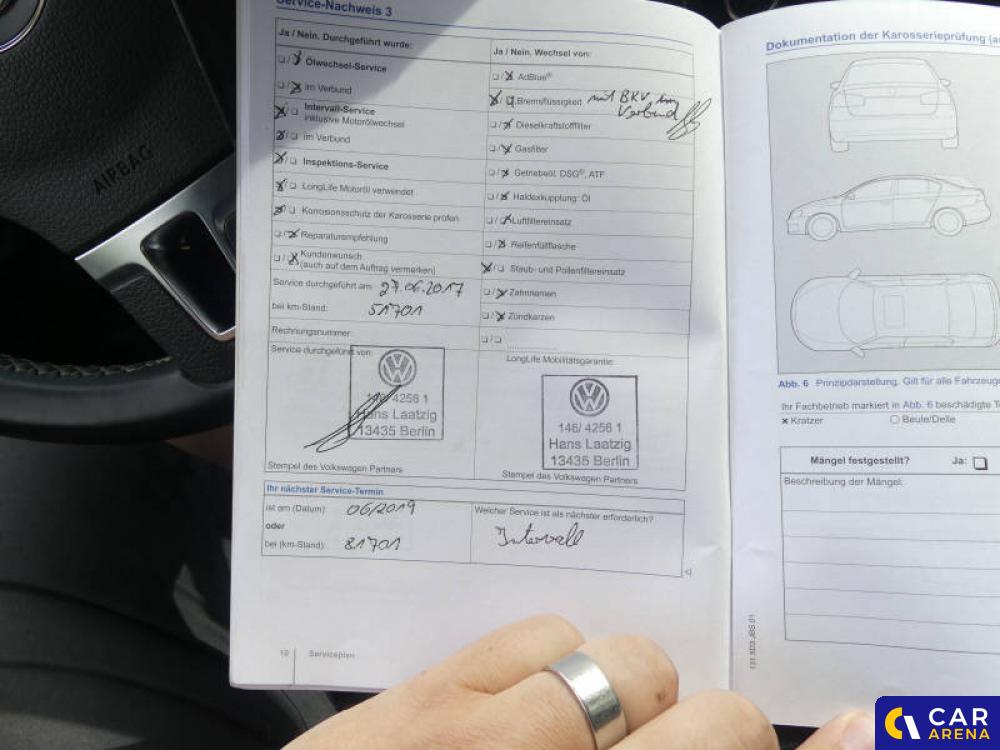 AIRBAG
Service-Nachweis 3
Ja / Nein. Durchgeführt wurde:
❏/❏ Ölwechsel-Service
❏/❏ im Verbund
❏/❏ Intervall-Service
inklusive Motorölwechsel
❏/❏ im Verbund
❏/❏ Inspektions-Service
❏/❏ LongLife Motoröl verwendet
❏/❏ Korrosionsschutz der Karosserie prüfen
❏/❏ Reparaturempfehlung
❏/❏ Kundenwunsch
(auch auf dem Auftrag vermerken)
Service durchgeführt am: 27.06.2017
bei km-Stand: 51701
Rechnungsnummer:
Service durchgeführt von:
146/ 4256 1
Hans Laatzig
13435 Berlin
Stempel des Volkswagen Partners
Ja / Nein. Wechsel von:
❏/❏ AdBlue®
❏/❏ Bremsflüssigkeit mit BKV im
Verbund
❏/❏ Dieselkraftstofffilter
❏/❏ Gasfilter
❏/❏ Getriebeöl: DSG®, ATF
❏/❏ Haldexkupplung: Öl
❏/❏ Luftfiltereinsatz
❏/❏ Reifenfüllflasche
❏/❏ Staub- und Pollenfiltereinsatz
❏/❏ Zahnriemen
❏/❏ Zündkerzen
❏/❏ ................
LongLife Mobilitätsgarantie:
146/ 4256 1
Hans Laatzig
13435 Berlin
Stempel des Volkswagen Partners
Ihr nächster Service-Termin
ist am (Datum): 06/2019
oder
bei (km-Stand): 81701
Welcher Service ist als nächster erforderlich?
Intervall
10
Serviceplan
Dokumentation der Karosserieprüfung
Abb. 6 Prinzipdarstellung. Gilt für alle
Ihr Fachbetrieb markiert in Abb. 6 beschädigte
× Kratzer
○ Beule/Delle
Mängel festgestellt? Ja: ❏
Beschreibung der Mängel:
CAR
ARENA